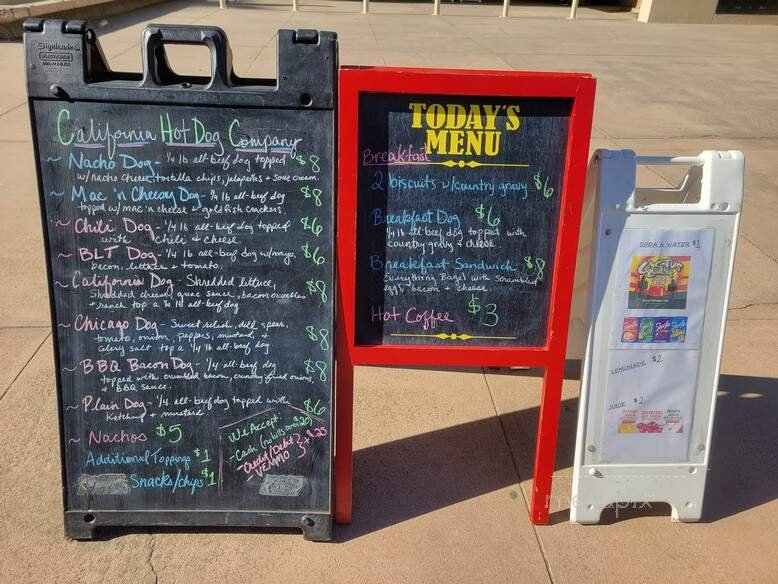 Signicade
California Hot Dog Company
~ Nacho Dog - 1/4 lb all-beef dog topped $8
w/nacho cheese, tortilla chips, jalapeños + sour cream.
~ Mac 'n Cheesy Dog - 1/4 lb all-beef dog $8
topped w/mac 'n cheese + goldfish crackers.
~ Chili Dog - 1/4 lb all-beef dog topped $6
with chili & cheese
~ BLT Dog - 1/4 lb all-beef dog w/mayo, $6
bacon, lettuce + tomato.
~ California Dog - Shredded lettuce, $8
shredded cheese, guac sauce, bacon crumbles
+ ranch top a 1/4 lb all-beef dog
~ Chicago Dog - Sweet relish, dill spear, $8
tomato, onion, peppers, mustard, &
celery salt top a 1/4 lb all-beef dog
~ BBQ Bacon Dog - 1/4 all-beef dog $8
topped with crumbled bacon, crunchy fried onions,
+ BBQ sauce.
~ Plain Dog - 1/4 all-beef dog topped with $6
ketchup + mustard.
~ Nachos $5
Additional Toppings $1
Snacks/chips $1
We Accept:
- Cash (no bills over $20)
- Credit/Debit + $.25
- VENMO
TODAY'S
MENU
Breakfast
2 biscuits w/country gravy $6
Breakfast Dog $6
1/4 lb all-beef dog topped with
country gravy & cheese.
Breakfast Sandwich $8
Everything Bagel with scrambled
eggs, bacon & cheese.
Hot Coffee $3
SODA & WATER $1
LEMONADE $2
JUICE $2